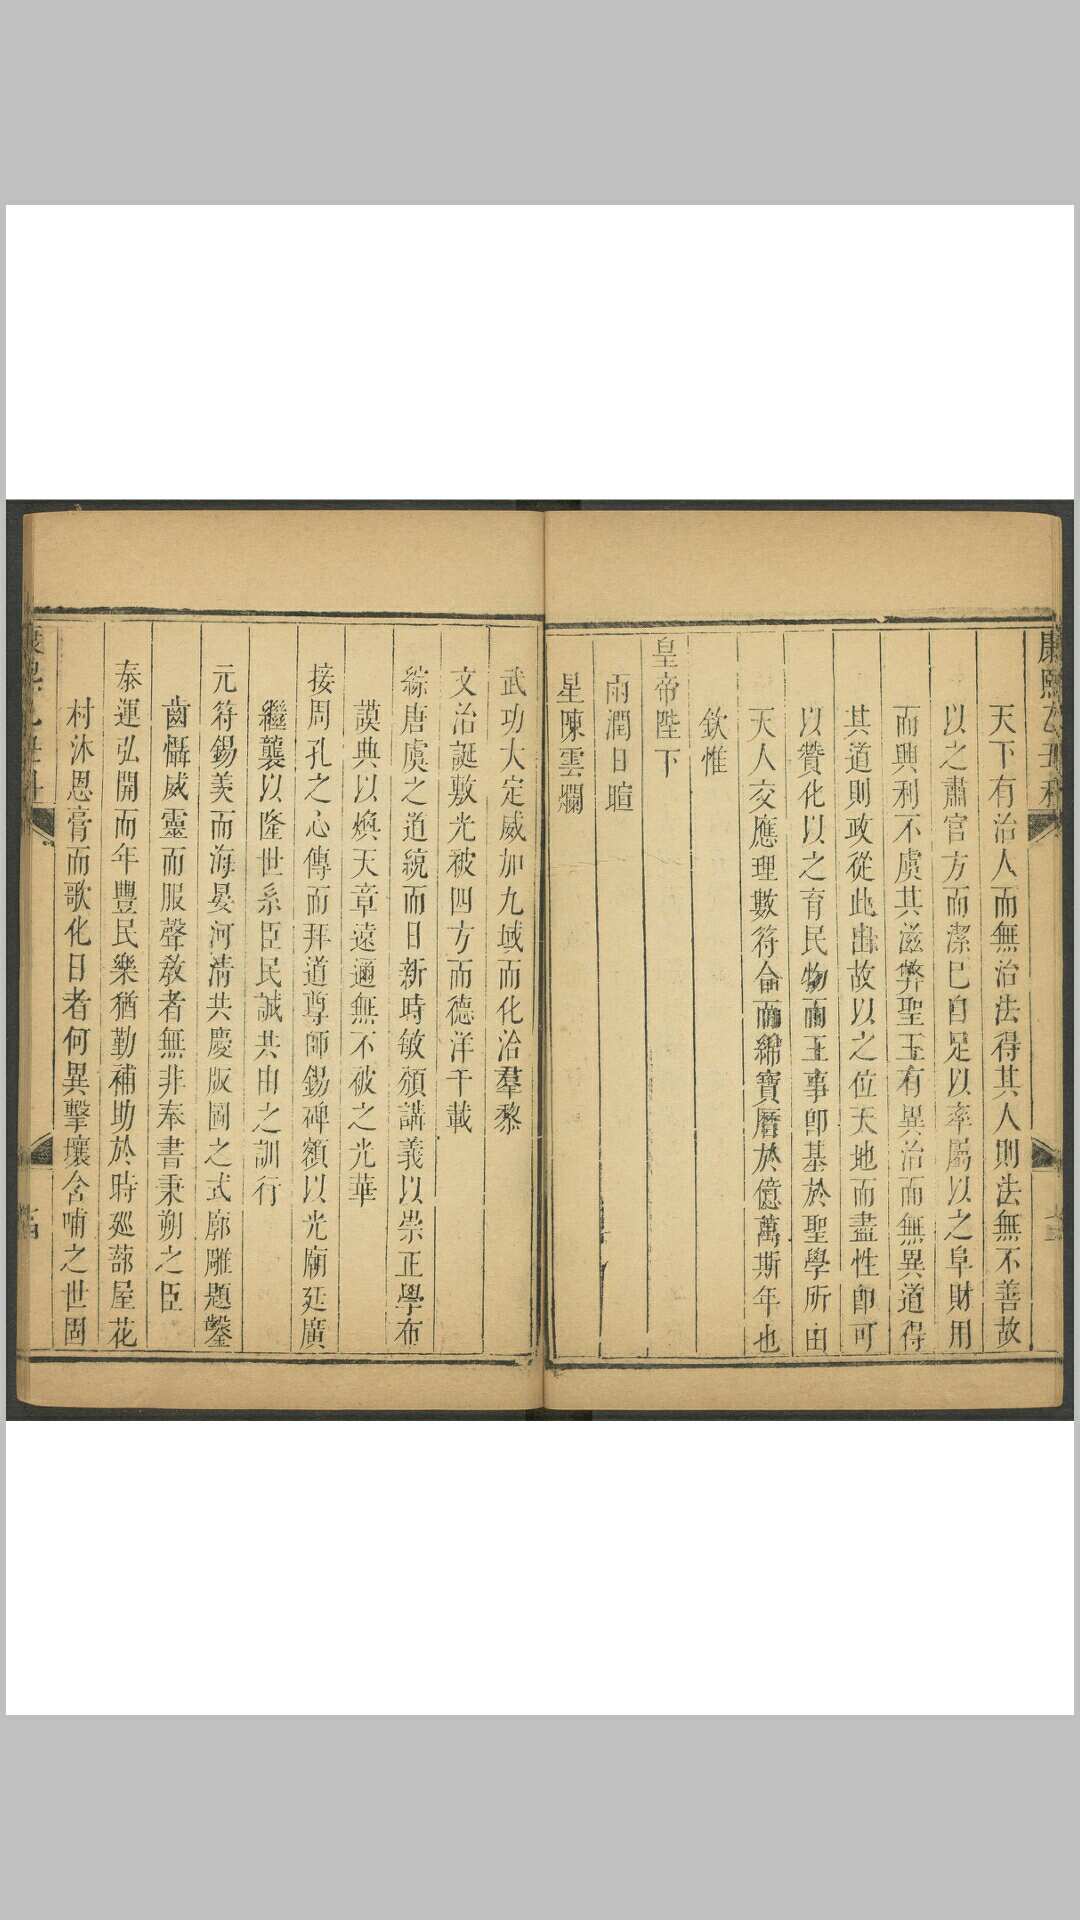 康熙乙丑科
天下有治人而無治法得其人則法無不善故
以之肅官方而潔已自足以率屬以之阜財用
而興利不虞其滋弊聖王有異治而無異道得
其道則政從此出故以之位天地而盡性卽可
以贊化以之育民物而王事卽基於聖學所由
天人交應理數符合而綿寶曆於億萬斯年也
欽惟
皇帝陛下
雨潤日暄
星陳雲爛
武功大定威加九域而化洽羣黎
文治誕敷光被四方而德洋千載
綜唐虞之道統而日新時敏頒講義以崇正學布
謨典以煥天章遠邇無不被之光華
接周孔之心傳而拜道尊師錫碑額以光廟廷廣
繼襲以隆世系臣民誠共由之訓行
元符錫美而海晏河清共慶版圖之式廓雕題鑿
齒懾威靈而服聲敎者無非奉書秉朔之臣
泰運弘開而年豐民樂猶勤補助於時廵蔀屋花
村沐恩膏而歌化日者何異擊壤含哺之世固